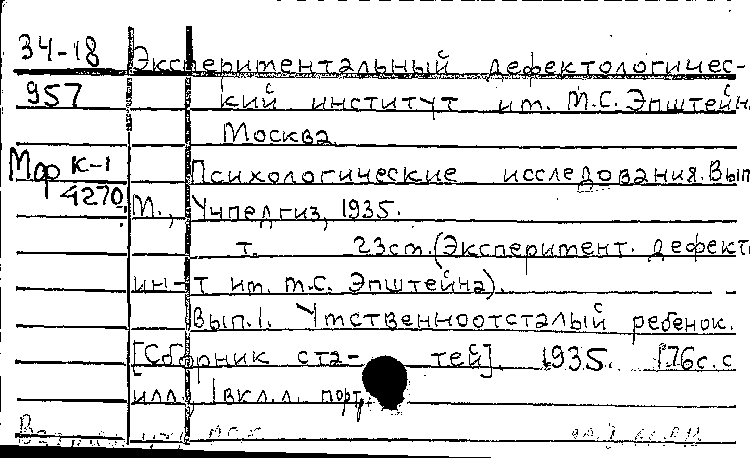 34-18 Экспериментальный дефектологичес-
957 кий институт им. М.С. Эпштейна
Москва.
Мф К-1 Психологические исследования. Вып
4270 М., Учпедгиз, 1935.
т. 23см. (Эксперимент. дефект
ин-т им. М.С. Эпштейна).
Вып.1. Умственноотсталый ребенок.
[Сборник ста- тей]. 1935. 176с. с
илл. 1 вкл.л. порт.